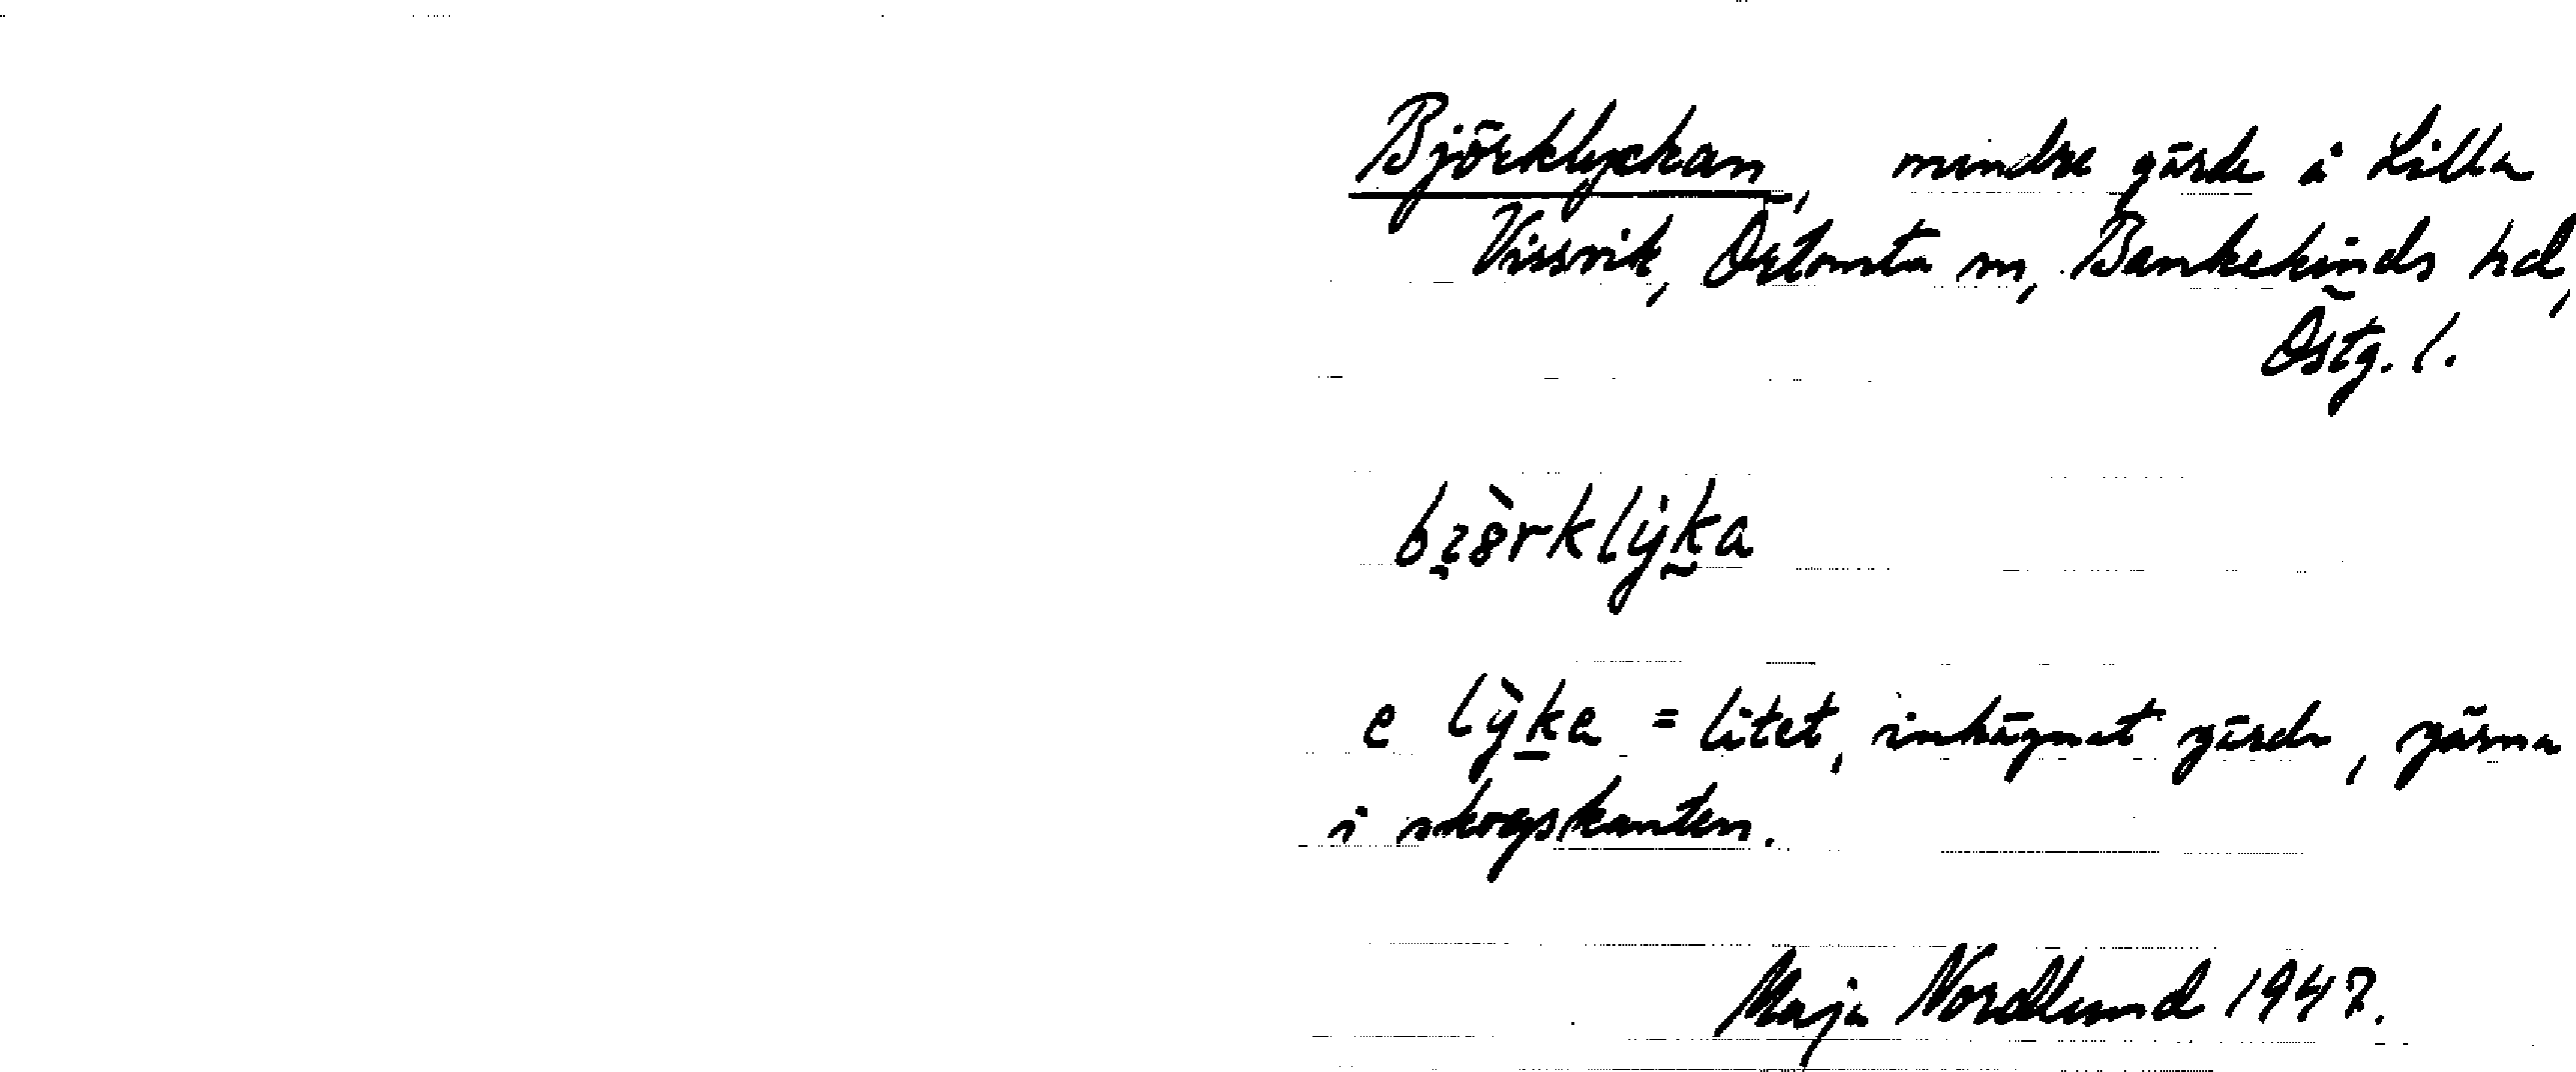 Björklyckan, mindre gärde å Lilla
Vissvik, Örtomta sn, Bankekinds hd,
Östg. l.
bɪ̯ɵ̀rklẏk̰a
e lỳk̠a = litet, inhägnat gärde, gärna
i skogskanten.
Maja Nordlund 1947.